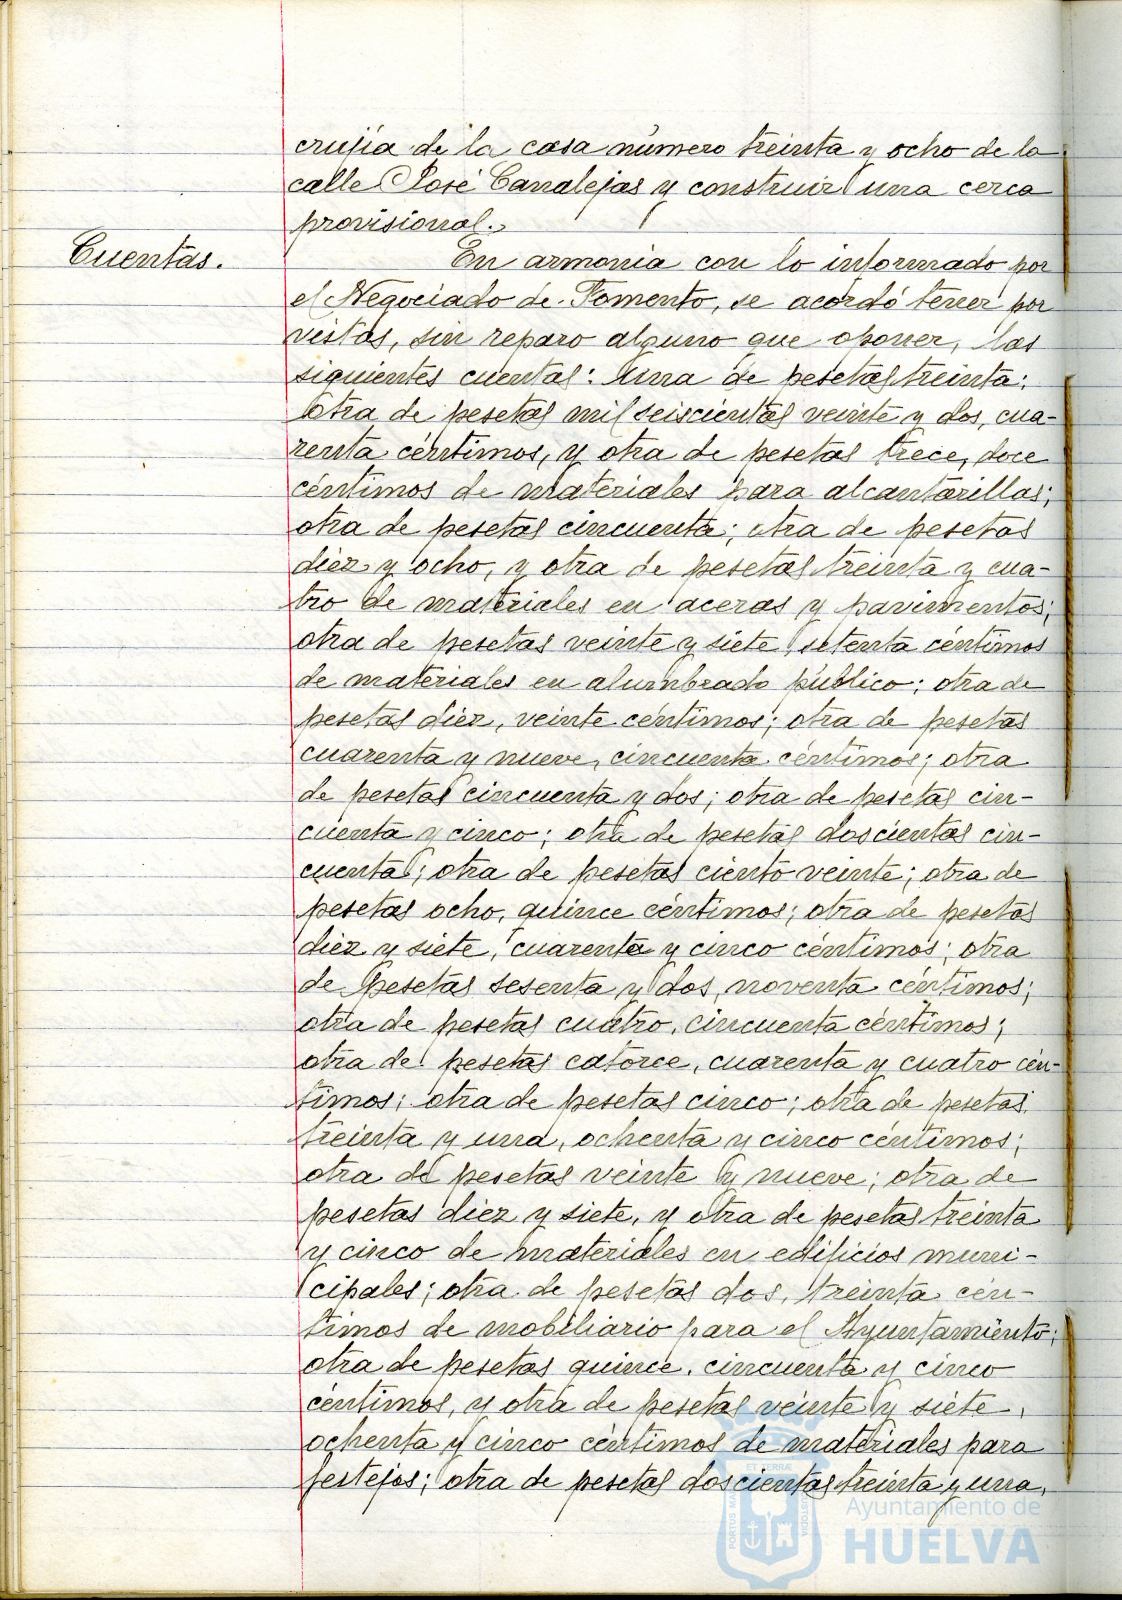 crujía de la casa número treinta y ocho de la
calle José Canalejas y construir una cerca
provisional.
Cuentas.
En armonia con lo informado por
el Negociado de Fomento, se acordó tener por
vistas, sin reparo alguno que oponer, las
siguientes cuentas: Una de pesetas treinta;
otra de pesetas mil seiscientas veinte y dos, cua-
renta céntimos, y otra de pesetas trece, doce
céntimos de materiales para alcantarillas;
otra de pesetas cincuenta; otra de pesetas
diez y ocho, y otra de pesetas treinta y cua-
tro de materiales en aceras y pavimentos;
otra de pesetas veinte y siete, setenta céntimos
de materiales en alumbrado público; otra de
pesetas diez, veinte céntimos; otra de pesetas
cuarenta y nueve, cincuenta céntimos; otra
de pesetas cincuenta y dos; otra de pesetas cin-
cuenta y cinco; otra de pesetas doscientas cin-
cuenta; otra de pesetas ciento veinte; otra de
pesetas ocho, quince céntimos; otra de pesetas
diez y siete, cuarenta y cinco céntimos; otra
de pesetas sesenta y dos, noventa céntimos;
otra de pesetas cuatro, cincuenta céntimos;
otra de pesetas catorce, cuarenta y cuatro cén-
timos; otra de pesetas cinco; otra de pesetas
treinta y una, ochenta y cinco céntimos;
otra de pesetas veinte y nueve; otra de
pesetas diez y siete, y otra de pesetas treinta
y cinco de materiales en edificios muni-
cipales; otra de pesetas dos, treinta cén-
timos de mobiliario para el Ayuntamiento;
otra de pesetas quince, cincuenta y cinco
céntimos, y otra de pesetas veinte y siete,
ochenta y cinco céntimos de materiales para
festejos; otra de pesetas doscientas treinta y una,
Ayuntamiento de
HUELVA